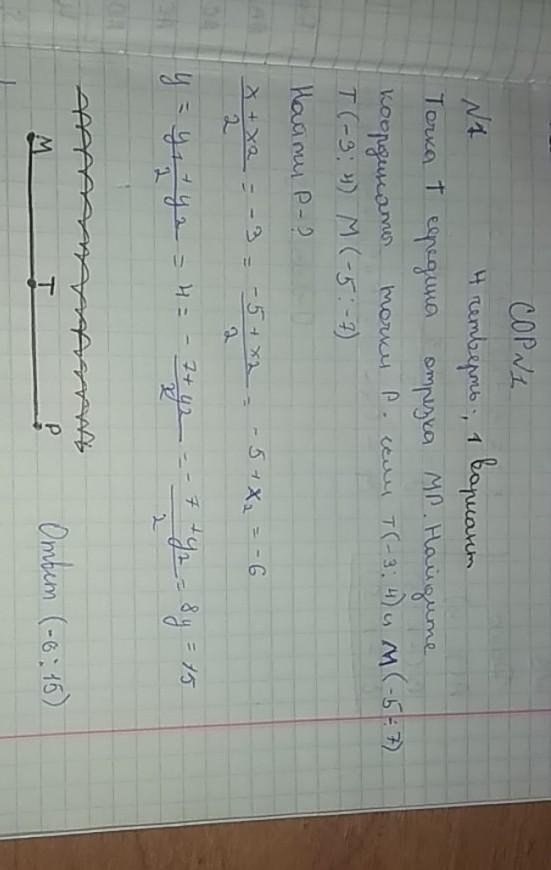 СОР N1
4 четверть, 1 вариант
N1
Точка T середина отрезка MP. Найдите
координаты точки P. если T(-3; 4) и M(-5; -7)
T(-3; 4) M(-5; -7)
Найти P-?
x+x2/2 = -3 = -5+x2/2 = -5+x2 = -6
y = y1+y2/2 = 4 = -7+y2/2 = -7+y2/2 = 8y = 15
M T P
Ответ (-6; 15)